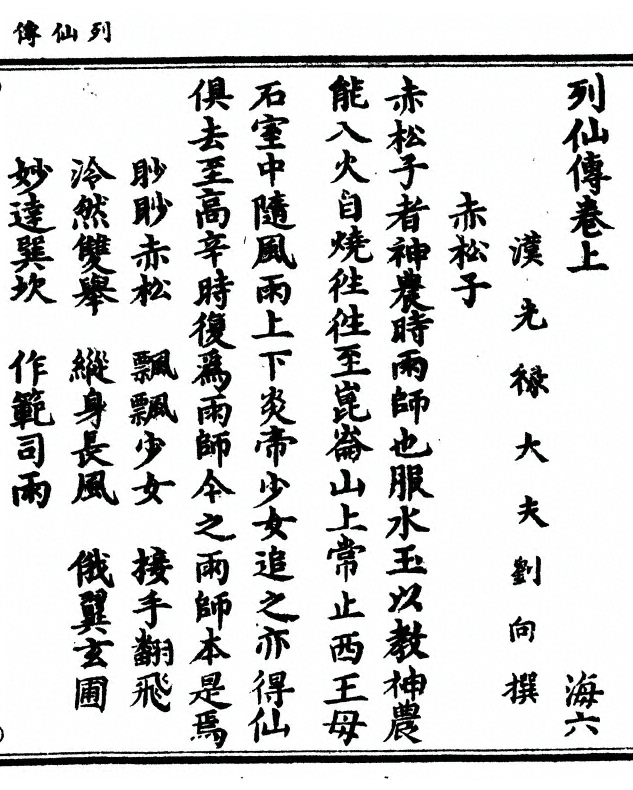 列仙傳
列仙傳卷上　海六
漢光祿大夫劉向撰
赤松子
赤松子者神農時雨師也服水玉以教神農
能入火自燒徃徃至崑崙山上常止西王母
石室中隨風雨上下炎帝少女追之亦得仙
俱去至高辛時復爲雨師今之雨師本是焉
眇眇赤松　飄飄少女　接手翻飛
泠然雙舉　縱身長風　俄翼玄圃
妙達巽坎　作範司雨